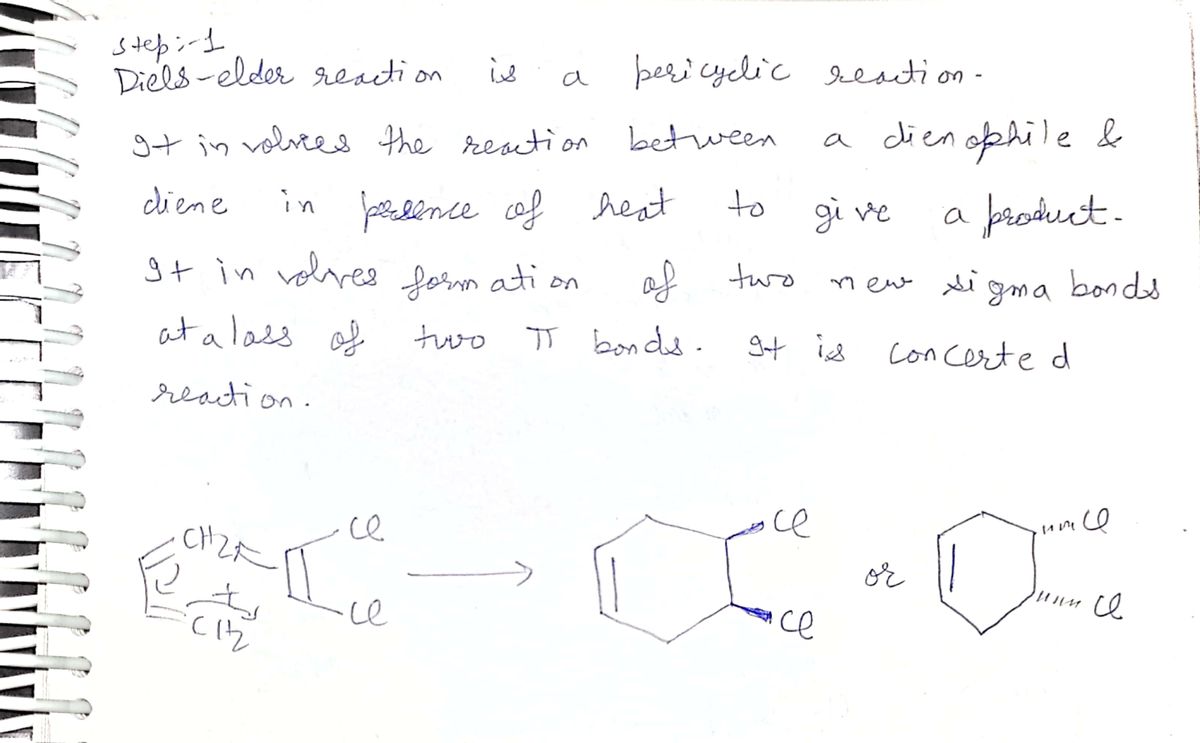 Step:-1
Diels-elder reaction is a pericyclic reaction.
It involves the reaction between a dienophile &
diene in presence of heat to give a product.
It involves formation of two new sigma bonds
at a loss of two π bonds. It is concerted
reaction.
CH2 Cl Cl Cl
+ or
CH2 Cl Cl Cl